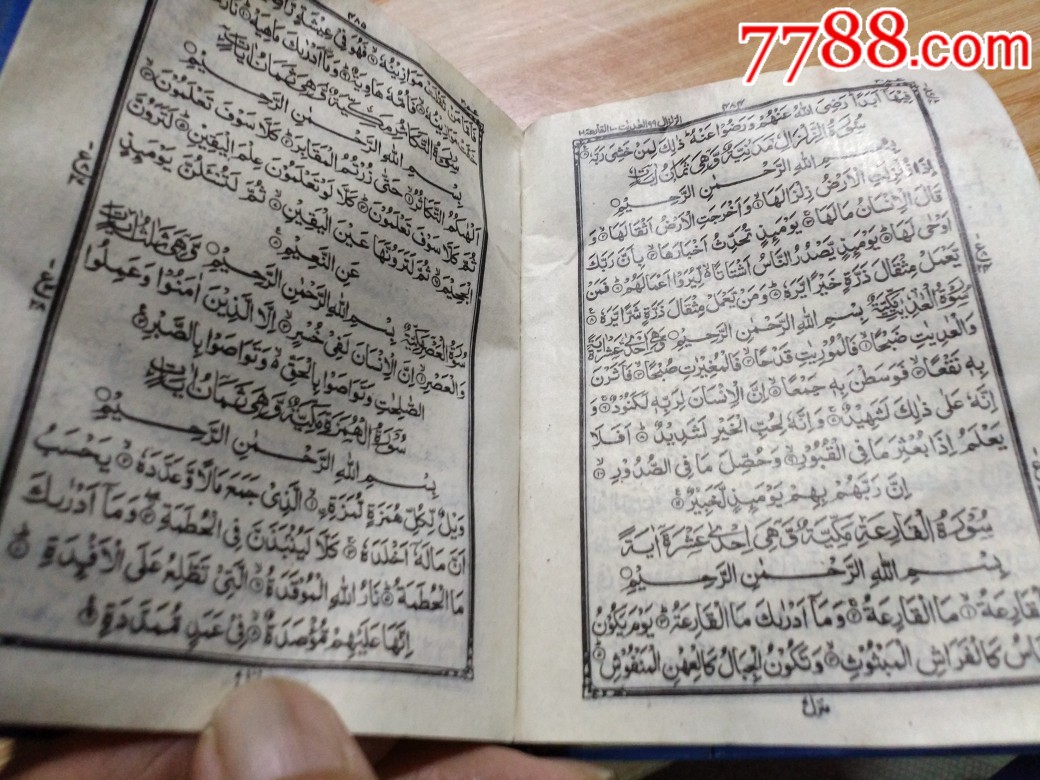 7788.com
۴۸۴
الزلزال ۹۹ العدیت ۱۰۰ القارعة ۱۰۱
فِيْهَآ اَبَدًا رَضِيَ اللّٰهُ عَنْهُمْ وَرَضُوْا عَنْهُ ذٰلِكَ لِمَنْ خَشِيَ رَبَّهٗ
بِسْمِ اللّٰهِ الرَّحْمٰنِ الرَّحِيْمِ
اِذَا زُلْزِلَتِ الْاَرْضُ زِلْزَالَهَا وَاَخْرَجَتِ الْاَرْضُ اَثْقَالَهَا وَ
قَالَ الْاِنْسَانُ مَالَهَا يَوْمَئِذٍ تُحَدِّثُ اَخْبَارَهَا بِاَنَّ رَبَّكَ
اَوْحٰى لَهَا يَوْمَئِذٍ يَّصْدُرُ النَّاسُ اَشْتَاتًا لِّيُرَوْا اَعْمَالَهُمْ فَمَنْ
يَّعْمَلْ مِثْقَالَ ذَرَّةٍ خَيْرًا يَّرَهٗ وَمَنْ يَّعْمَلْ مِثْقَالَ ذَرَّةٍ شَرًّا يَّرَهٗ
سُوْرَةُ الْعٰدِيٰتِ مَكِّيَّةٌ بِسْمِ اللّٰهِ الرَّحْمٰنِ الرَّحِيْمِ وَهِيَ اِحْدٰى عَشْرَةَ اٰيَةً
وَالْعٰدِيٰتِ ضَبْحًا فَالْمُوْرِيٰتِ قَدْحًا فَالْمُغِيْرٰتِ صُبْحًا فَاَثَرْنَ
بِهٖ نَقْعًا فَوَسَطْنَ بِهٖ جَمْعًا اِنَّ الْاِنْسَانَ لِرَبِّهٖ لَكَنُوْدٌ وَ
اِنَّهٗ عَلٰى ذٰلِكَ لَشَهِيْدٌ وَاِنَّهٗ لِحُبِّ الْخَيْرِ لَشَدِيْدٌ اَفَلَا
يَعْلَمُ اِذَا بُعْثِرَ مَا فِى الْقُبُوْرِ وَحُصِّلَ مَا فِى الصُّدُوْرِ
اِنَّ رَبَّهُمْ بِهِمْ يَوْمَئِذٍ لَّخَبِيْرٌ
سُوْرَةُ الْقَارِعَةِ مَكِّيَّةٌ وَّهِيَ اِحْدٰى عَشْرَةَ اٰيَةً
بِسْمِ اللّٰهِ الرَّحْمٰنِ الرَّحِيْمِ
اَلْقَارِعَةُ مَا الْقَارِعَةُ وَمَآ اَدْرٰىكَ مَا الْقَارِعَةُ يَوْمَ يَكُوْنُ
النَّاسُ كَالْفَرَاشِ الْمَبْثُوْثِ وَتَكُوْنُ الْجِبَالُ كَالْعِهْنِ الْمَنْفُوْشِ
منزل
۴۸۵
مَوَازِيْنُهٗ فَهُوَ فِيْ عِيْشَةٍ
مَوَازِيْنُهٗ فَاُمُّهٗ هَاوِيَةٌ وَمَآ اَدْرٰىكَ مَاهِيَهْ نَارٌ
بِسْمِ اللّٰهِ الرَّحْمٰنِ الرَّحِيْمِ
اَلْهٰىكُمُ التَّكَاثُرُ حَتّٰى زُرْتُمُ الْمَقَابِرَ كَلَّا سَوْفَ تَعْلَمُوْنَ
ثُمَّ كَلَّا سَوْفَ تَعْلَمُوْنَ كَلَّا لَوْ تَعْلَمُوْنَ عِلْمَ الْيَقِيْنِ لَتَرَوُنَّ
الْجَحِيْمَ ثُمَّ لَتَرَوُنَّهَا عَيْنَ الْيَقِيْنِ ثُمَّ لَتُسْئَلُنَّ يَوْمَئِذٍ
عَنِ النَّعِيْمِ
سُوْرَةُ الْعَصْرِ مَكِّيَّةٌ بِسْمِ اللّٰهِ الرَّحْمٰنِ الرَّحِيْمِ وَّهِيَ ثَلٰثُ اٰيٰتٍ
وَالْعَصْرِ اِنَّ الْاِنْسَانَ لَفِيْ خُسْرٍ اِلَّا الَّذِيْنَ اٰمَنُوْا وَعَمِلُوا
الصّٰلِحٰتِ وَتَوَاصَوْا بِالْحَقِّ وَتَوَاصَوْا بِالصَّبْرِ
سُوْرَةُ الْهُمَزَةِ مَكِّيَّةٌ وَّهِيَ ثَمَانُ اٰيَاتٍ
بِسْمِ اللّٰهِ الرَّحْمٰنِ الرَّحِيْمِ
وَيْلٌ لِّكُلِّ هُمَزَةٍ لُّمَزَةٍ الَّذِيْ جَمَعَ مَالًا وَّعَدَّدَهٗ يَحْسَبُ
اَنَّ مَالَهٗ اَخْلَدَهٗ كَلَّا لَيُنْبَذَنَّ فِى الْحُطَمَةِ وَمَآ اَدْرٰىكَ
مَا الْحُطَمَةُ نَارُ اللّٰهِ الْمُوْقَدَةُ الَّتِيْ تَطَّلِعُ عَلَى الْاَفْئِدَةِ
اِنَّهَا عَلَيْهِمْ مُّؤْصَدَةٌ فِيْ عَمَدٍ مُّمَدَّدَةٍ